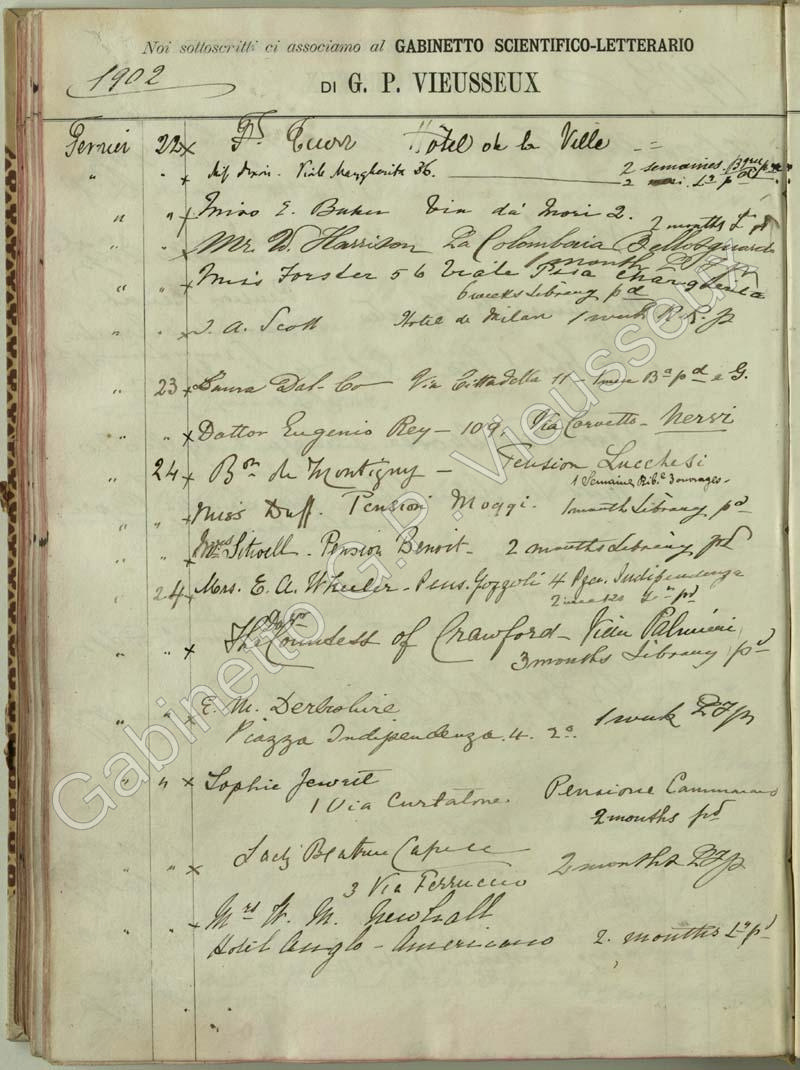 Noi sottoscritti ci associamo al GABINETTO SCIENTIFICO-LETTERARIO
1902
DI G. P. VIEUSSEUX
22 x Hôtel de la Ville =
" " x Viale Margherita 36. 2 semaines
2
" " x Miss E. Baker Via da' Mori 2. 2 months
" " x Mr. W. Harrison La Colombaia Bellosguardo
1 month
" " x Miss Forster 56 Viale
6 weeks Library pd
" " x J. A. Scott Hotel de Milan 1 week R. R. p
" 23 x Laura Dal-Co Via Cittadella 11 - pd e G.
" " x Dottor Eugenio Rey - 109, Via Corvetto - Nervi
" 24 x Bon de Montigny - Pension Lucchesi
1 Semaine 3 ouvrages.
" " x Miss Duff. Pension Moggi. 1 month Library pd
" " x Mrs Sitwell - Pension Benoit - 2 months Library pd
" 24 x Mrs. E. A. Wheeler - Pens. Gozzoli 4 Pza. Indipendenza
pd
" " x The Countess of Crawford - Villa Palmieri
3 months Library pd
" " x E. M. Derbishire
Piazza Indipendenza. 4. 2o. 1 week
" " x Sophie Jewett
1 Via Curtatone. Pensione
2 months pd
" " x Lady Beatrice
3 Via Ferruccio 2 months
" " x Mrs W. M. Newhall
Hotel Anglo-Americano 2. months pd
Gabinetto G.P. Vieusseux